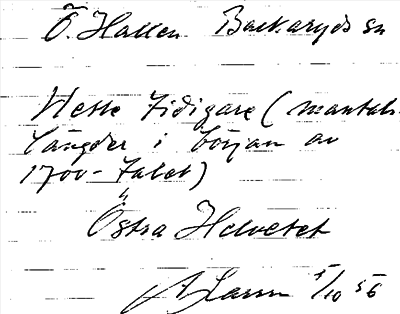 Ö. Hallen. Backaryds sn
Hette tidigare (mantals-
längder i början av
1700-talet)
Östra Helvetet
5/10 56